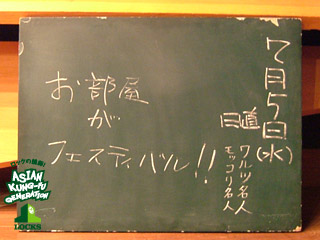 7月5日(水)
日直
ワルツ名人
モッコリ名人
お部屋
が
フェスティバル!!
ASIAN
KUNG-FU
GENERATION
LOCKS